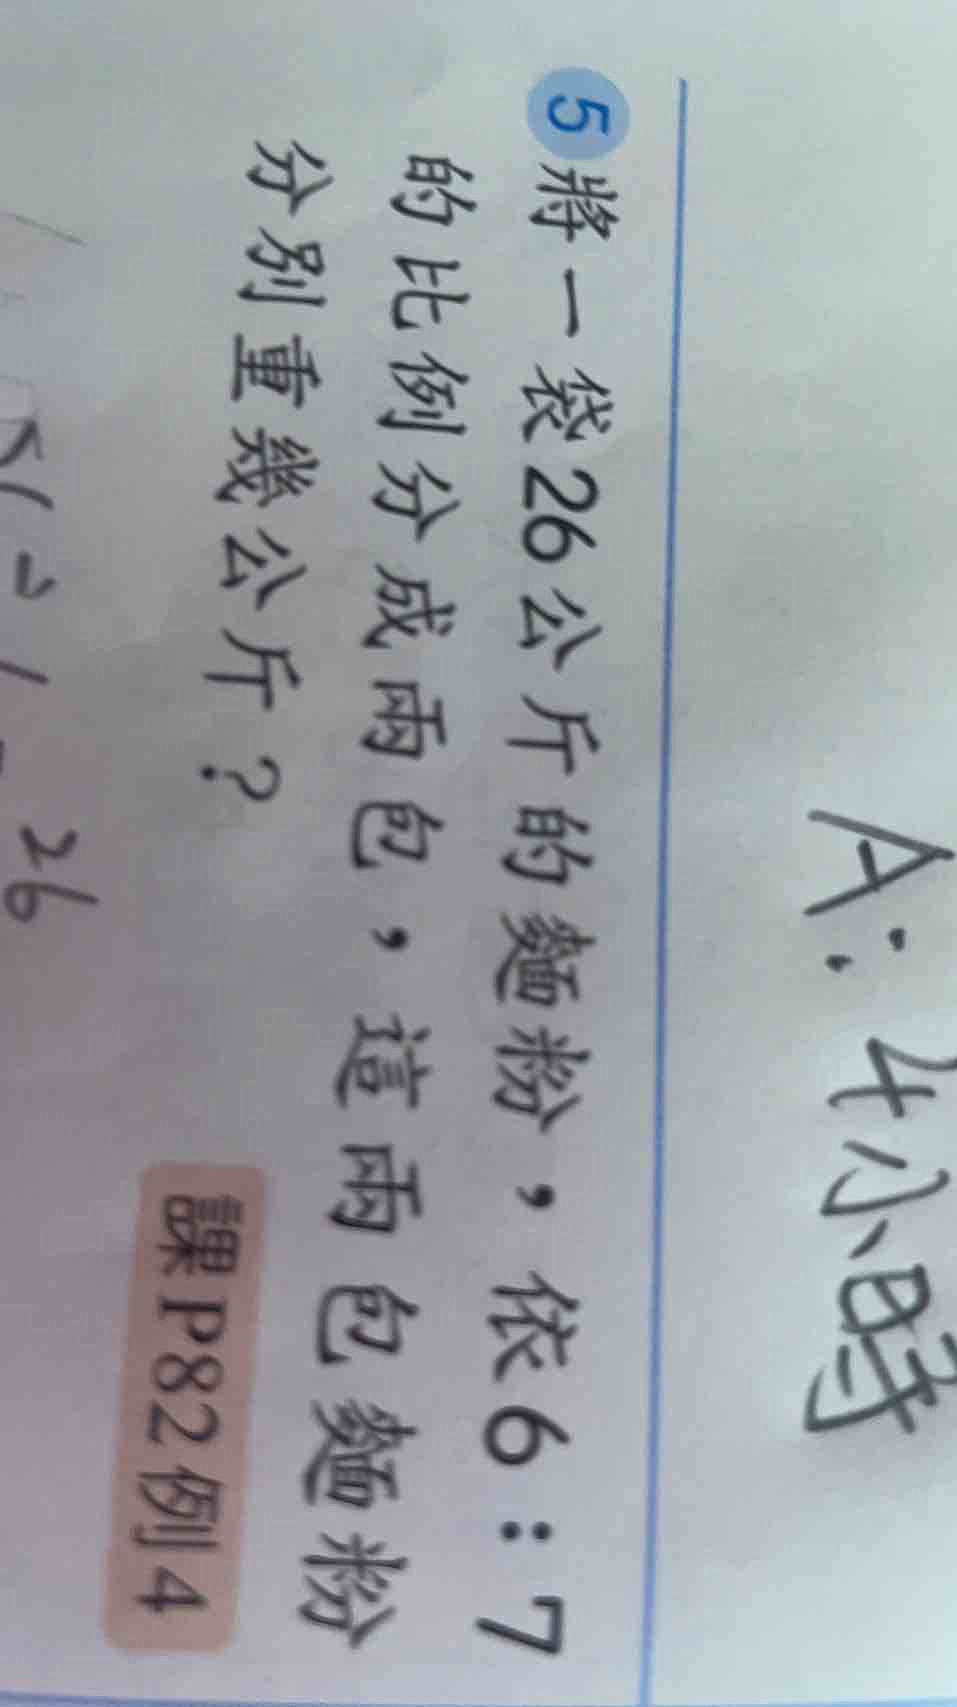 A：4小時
5 將一袋26公斤的麵粉，依6：7
的比例分成兩包，這兩包麵粉
分別重幾公斤？
課P82例4
26